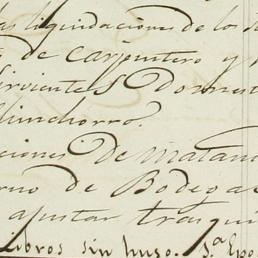 las liquidaciones de los
de Carpintero y
Sirvientes Domest
Chinchorro.
ciones De Matan
rno de Bodegas
ajustar trasqui
Libros sin huso. 3.ª Epo